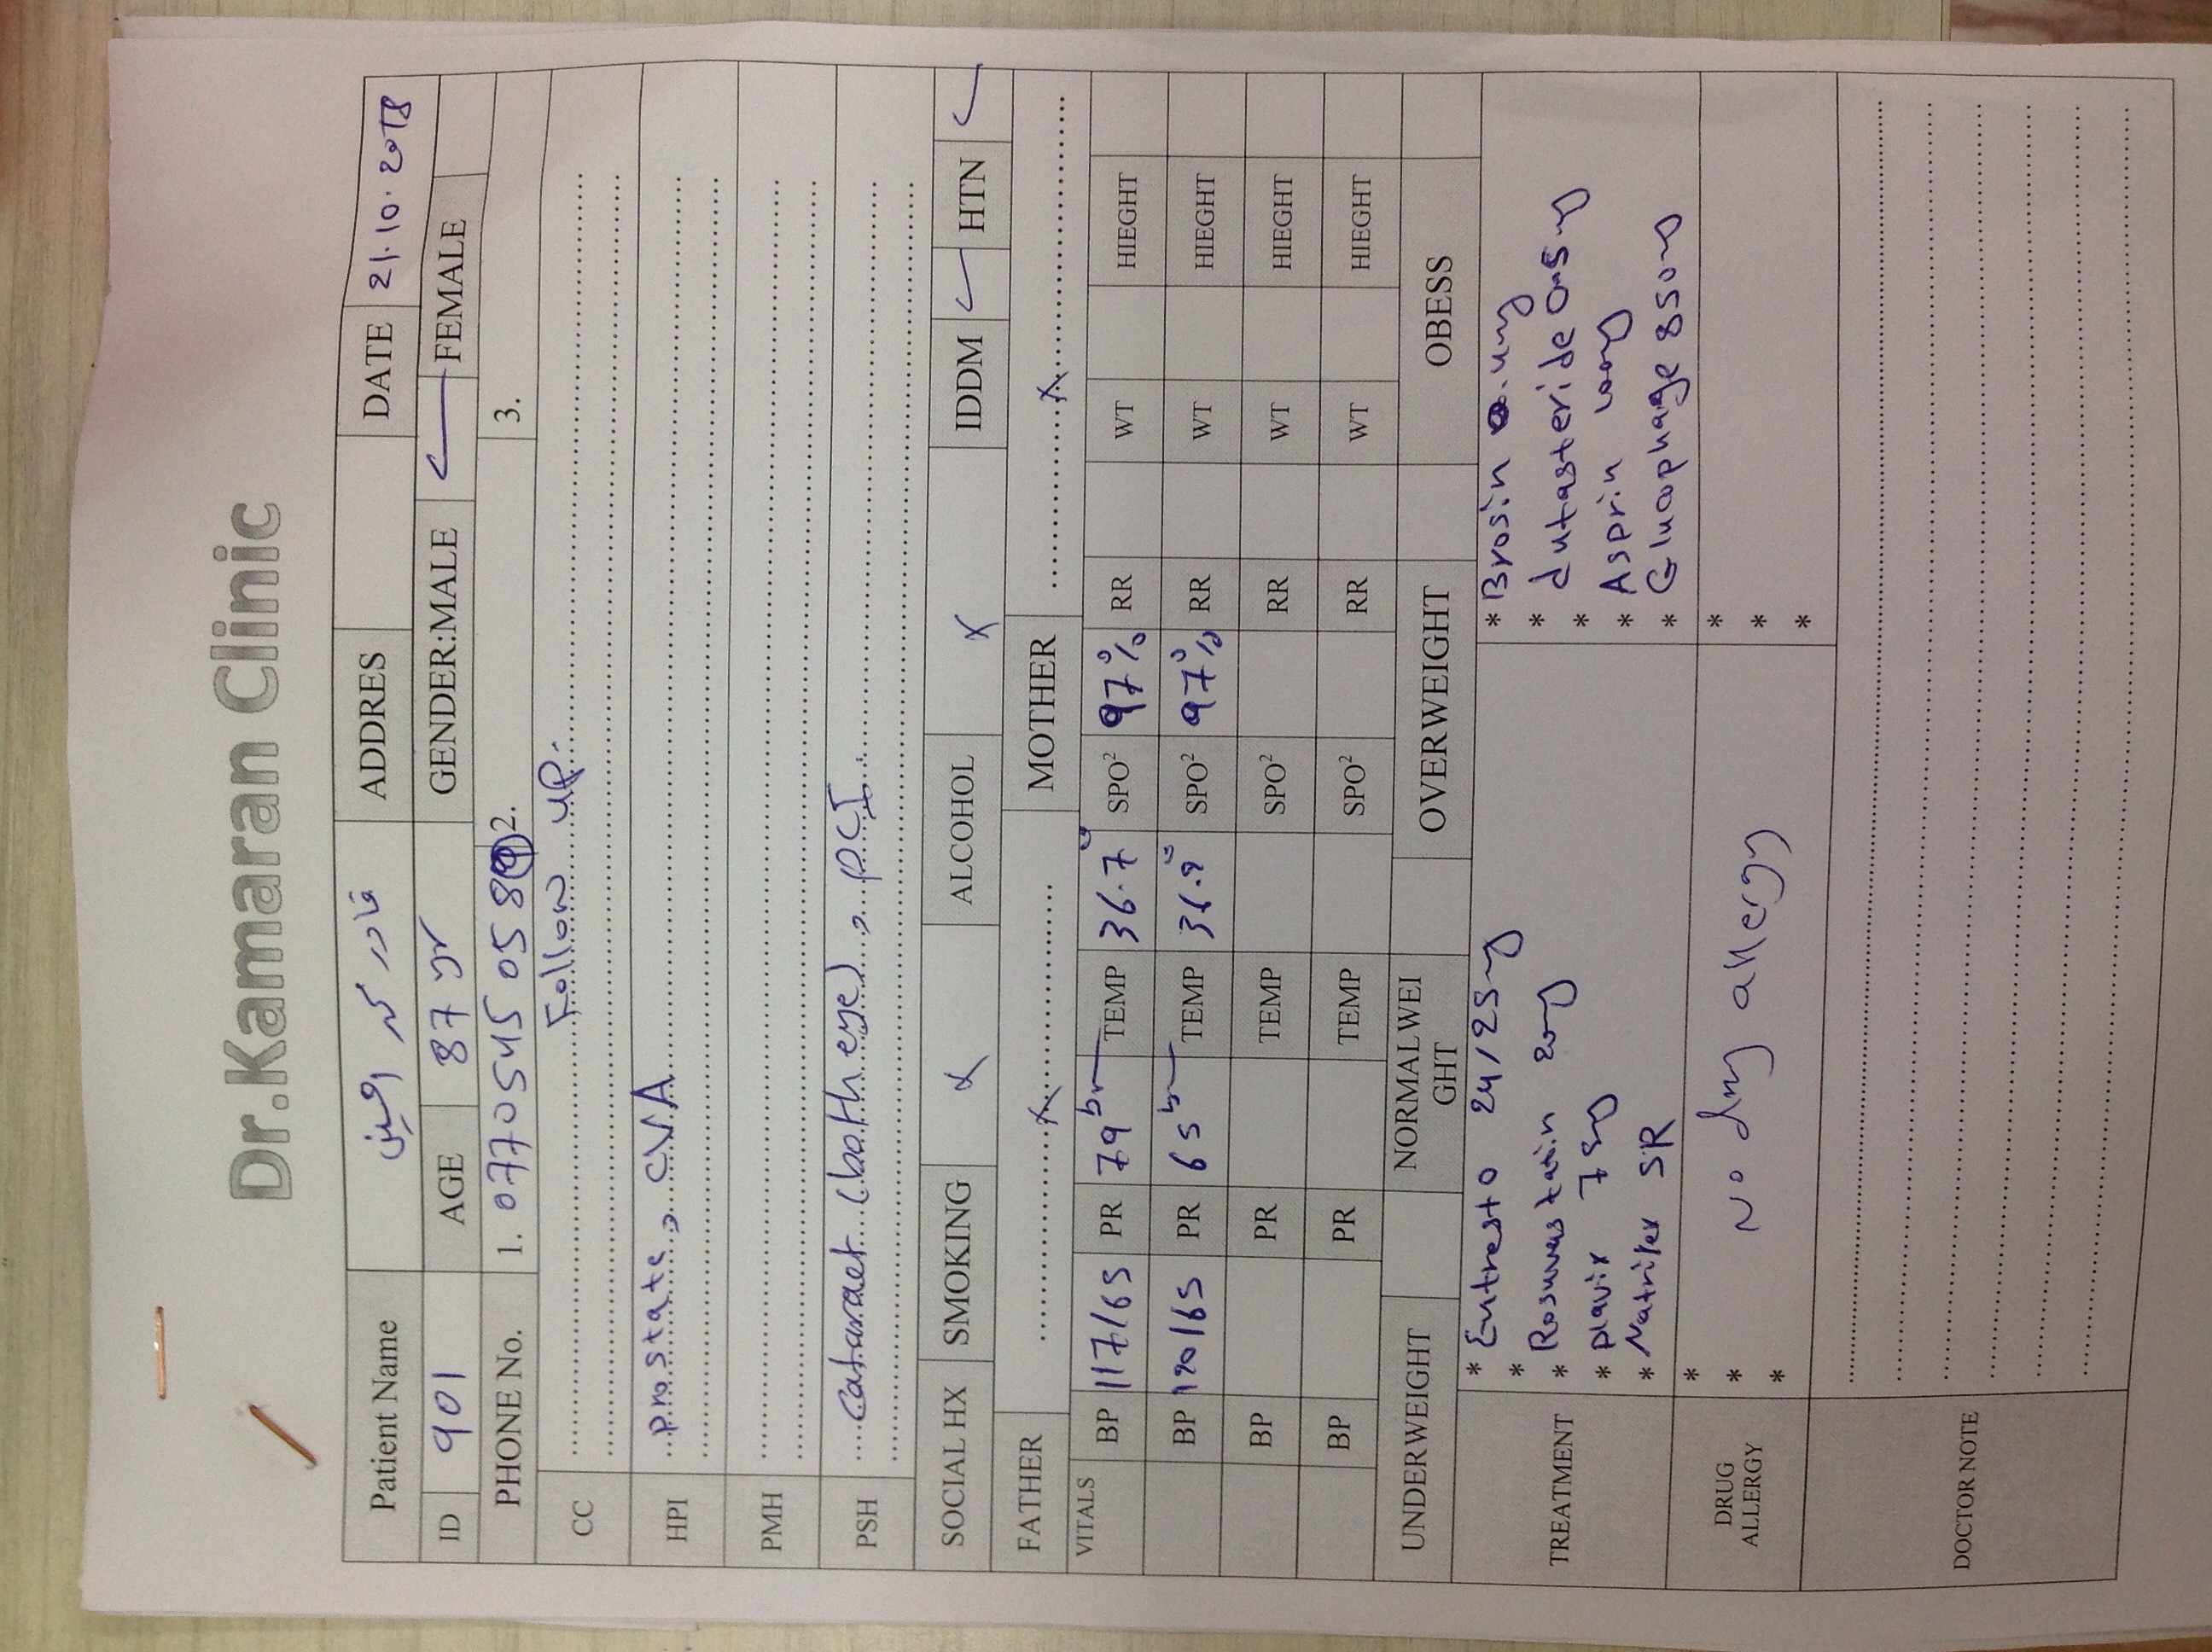 Dr.Kamaran Clinic
Patient Name قادر امين ADDRES DATE 21.10.2018
ID 901 AGE 87 yr GENDER:MALE ✓ FEMALE
PHONE No. 1. 0770545 058 2. 3.
CC Follow up.
HPI prostate, CVA
PMH
PSH Cataract (both eye), PCI
SOCIAL HX SMOKING x ALCOHOL x IDDM ✓ HTN ✓
FATHER x MOTHER x
VITALS BP 117/65 PR 79 br TEMP 36.7 c SPO² 97% RR WT HIEGHT
BP 120/65 PR 65 br TEMP 36.9 c SPO² 97% RR WT HIEGHT
BP PR TEMP SPO² RR WT HIEGHT
BP PR TEMP SPO² RR WT HIEGHT
UNDERWEIGHT NORMALWEI
GHT OVERWEIGHT OBESS
TREATMENT
* Entresto 24/25mg
* Rosuvastatin 20mg
* plavix 75mg
* Natrilex SR
*
* Brosin
* dutasteride 0.5mg
* Asprin 100mg
* Glucophage 850mg
*
DRUG
ALLERGY
* No drug allergy *
* *
* *
DOCTOR NOTE